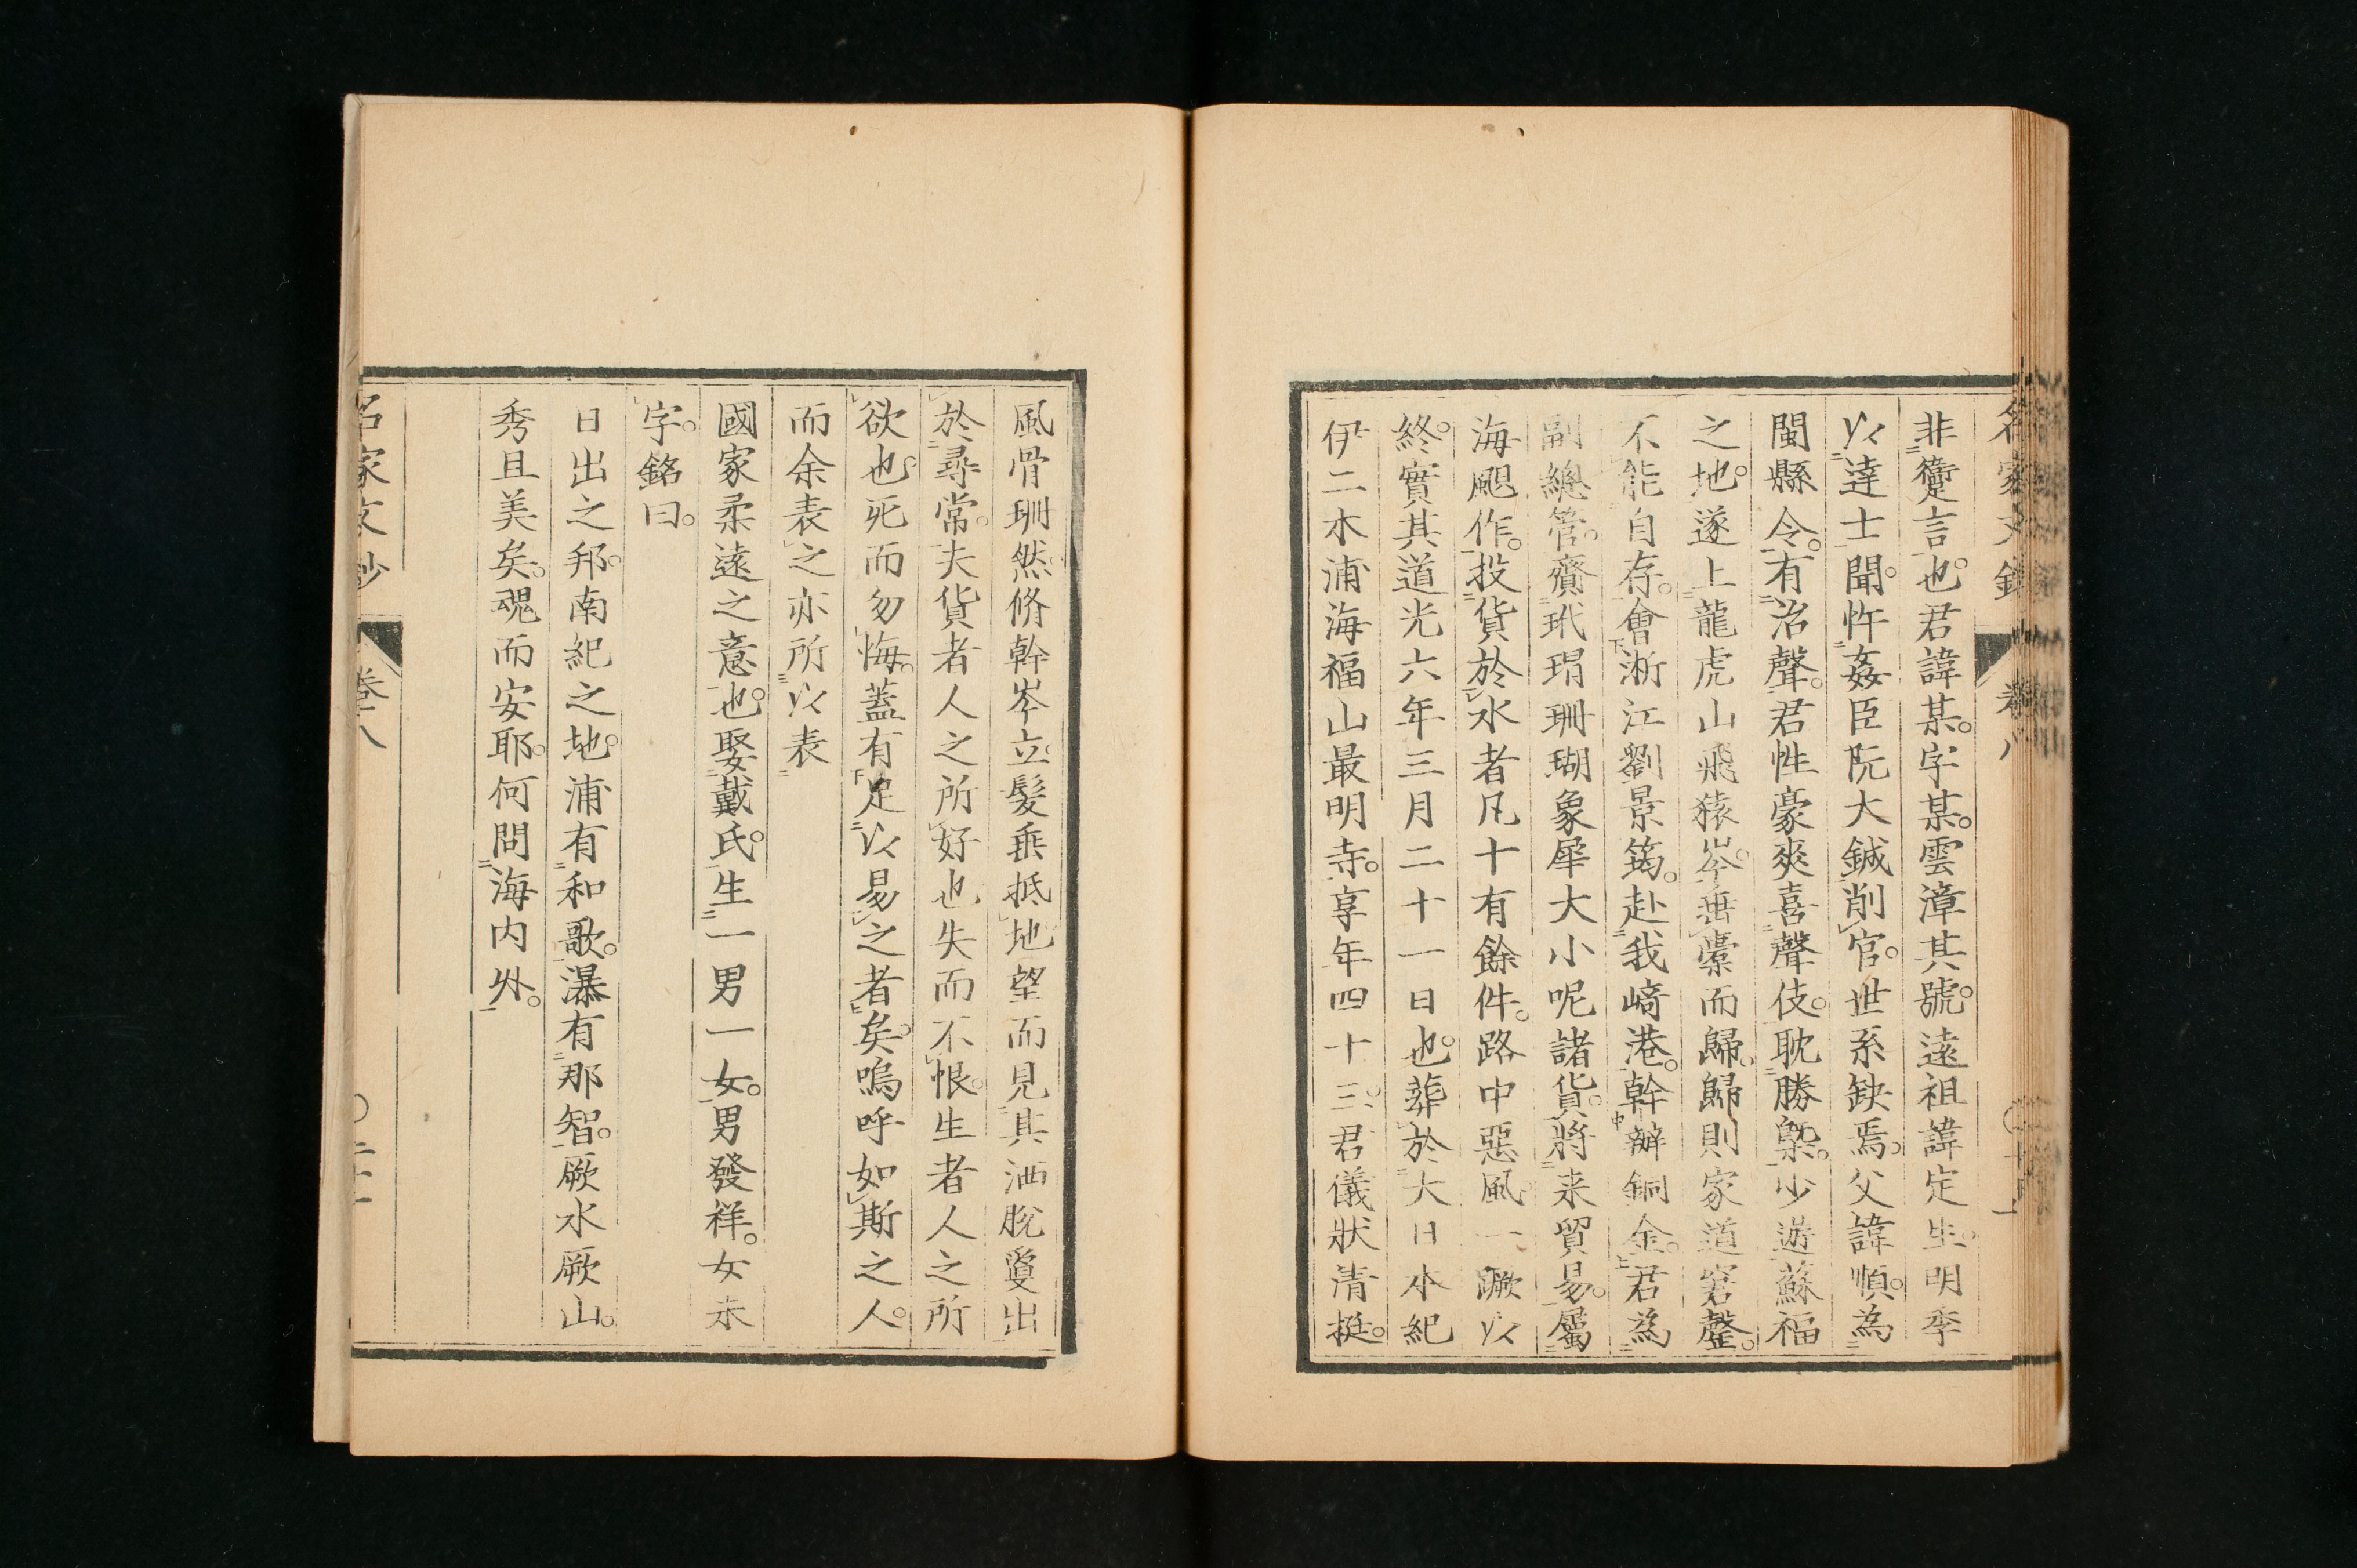 名家文鈔 卷八
非躗言也。君諱某。字某。雲漳其號。遠祖諱定生。明季
以達士聞。忤姦臣阮大鋮削官。世系缺焉。父諱順。為
閩縣令。有治聲。君性豪爽喜聲伎。耽勝槩。少遊蘇福
之地。遂上龍虎山飛猿岑垂橐而歸。歸則家道窘罄。
不能自存。會淅江劉景筠。赴我﨑港。幹辦銅金。君為
副總管。齎玳瑁珊瑚象犀大小呢諸貨。將来貿易。屬
海颶作。投貨於水者凡十有餘件。路中惡風一蹶以
終。實其道光六年三月二十一日也。葬於大日本紀
伊二木浦海福山最明寺。享年四十三。君儀狀清挺。
風骨珊然。脩幹岑立。髮垂抵地望而見其洒脫夐出
於尋常。夫貨者人之所好也失而不恨。生者人之所
欲也。死而勿悔。蓋有足以易之者矣。嗚呼如斯之人。
而余表之亦所以表
國家柔遠之意也。娶戴氏。生一男一女。男發祥。女未
字。銘曰。
日出之邦。南紀之地。浦有和歌。瀑有那智。厥水厥山。
秀且美矣。魂而安耶。何問海内外。
名家文鈔 卷八